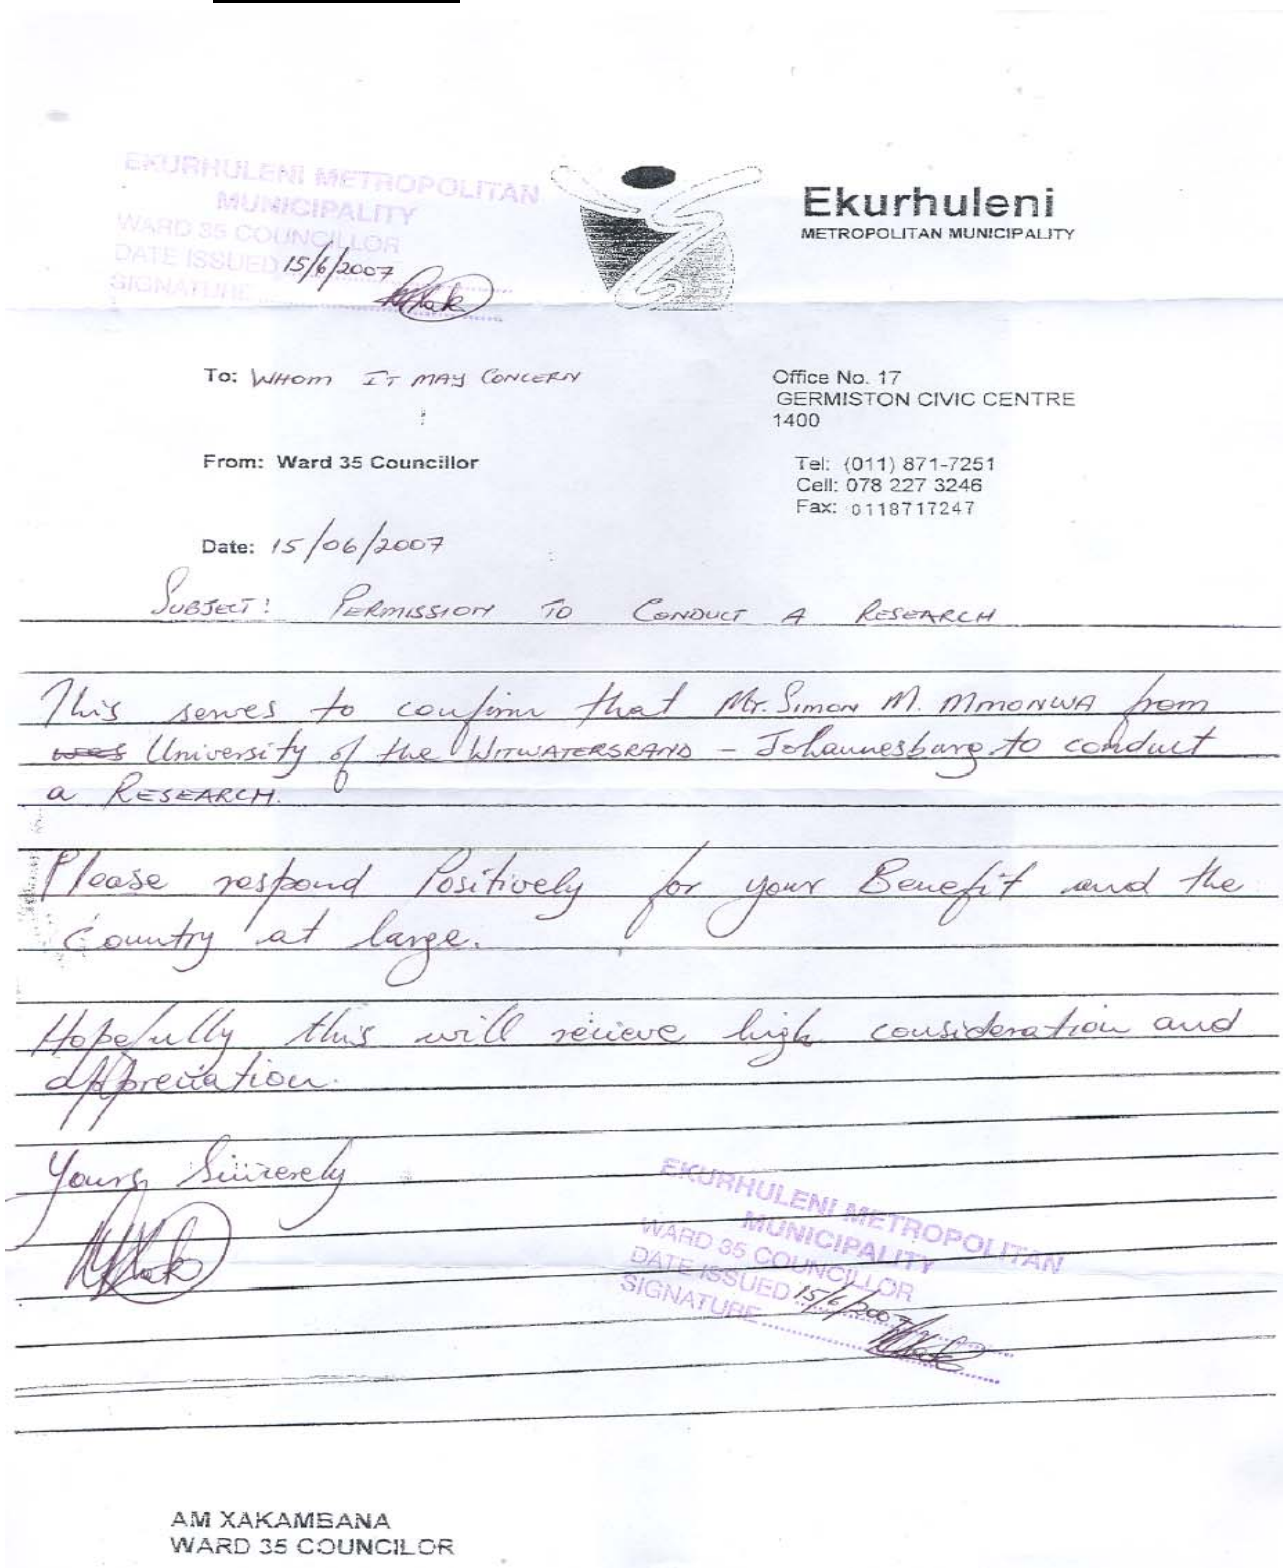 EKURHULENI METROPOLITAN
MUNICIPALITY
WARD 35 COUNCILLOR
DATE ISSUED 15/6/2007
SIGNATURE
Ekurhuleni
METROPOLITAN MUNICIPALITY
To: WHOM IT MAY CONCERN
Office No. 17
GERMISTON CIVIC CENTRE
1400
From: Ward 35 Councillor
Tel: (011) 871-7251
Cell: 078 227 3246
Fax: 0118717247
Date: 15/06/2007
SUBJECT: PERMISSION TO CONDUCT A RESEARCH
This serves to confirm that Mr. Simon M. MMONWA from
University of the WITWATERSRAND - Johannesburg to conduct
a RESEARCH.
Please respond Positively for your Benefit and the
Country at large.
Hopefully this will recieve high consideration and
appreciation.
Yours Sincerely
EKURHULENI METROPOLITAN
MUNICIPALITY
WARD 35 COUNCILLOR
DATE ISSUED 15/6/2007
SIGNATURE
AM XAKAMBANA
WARD 35 COUNCILOR